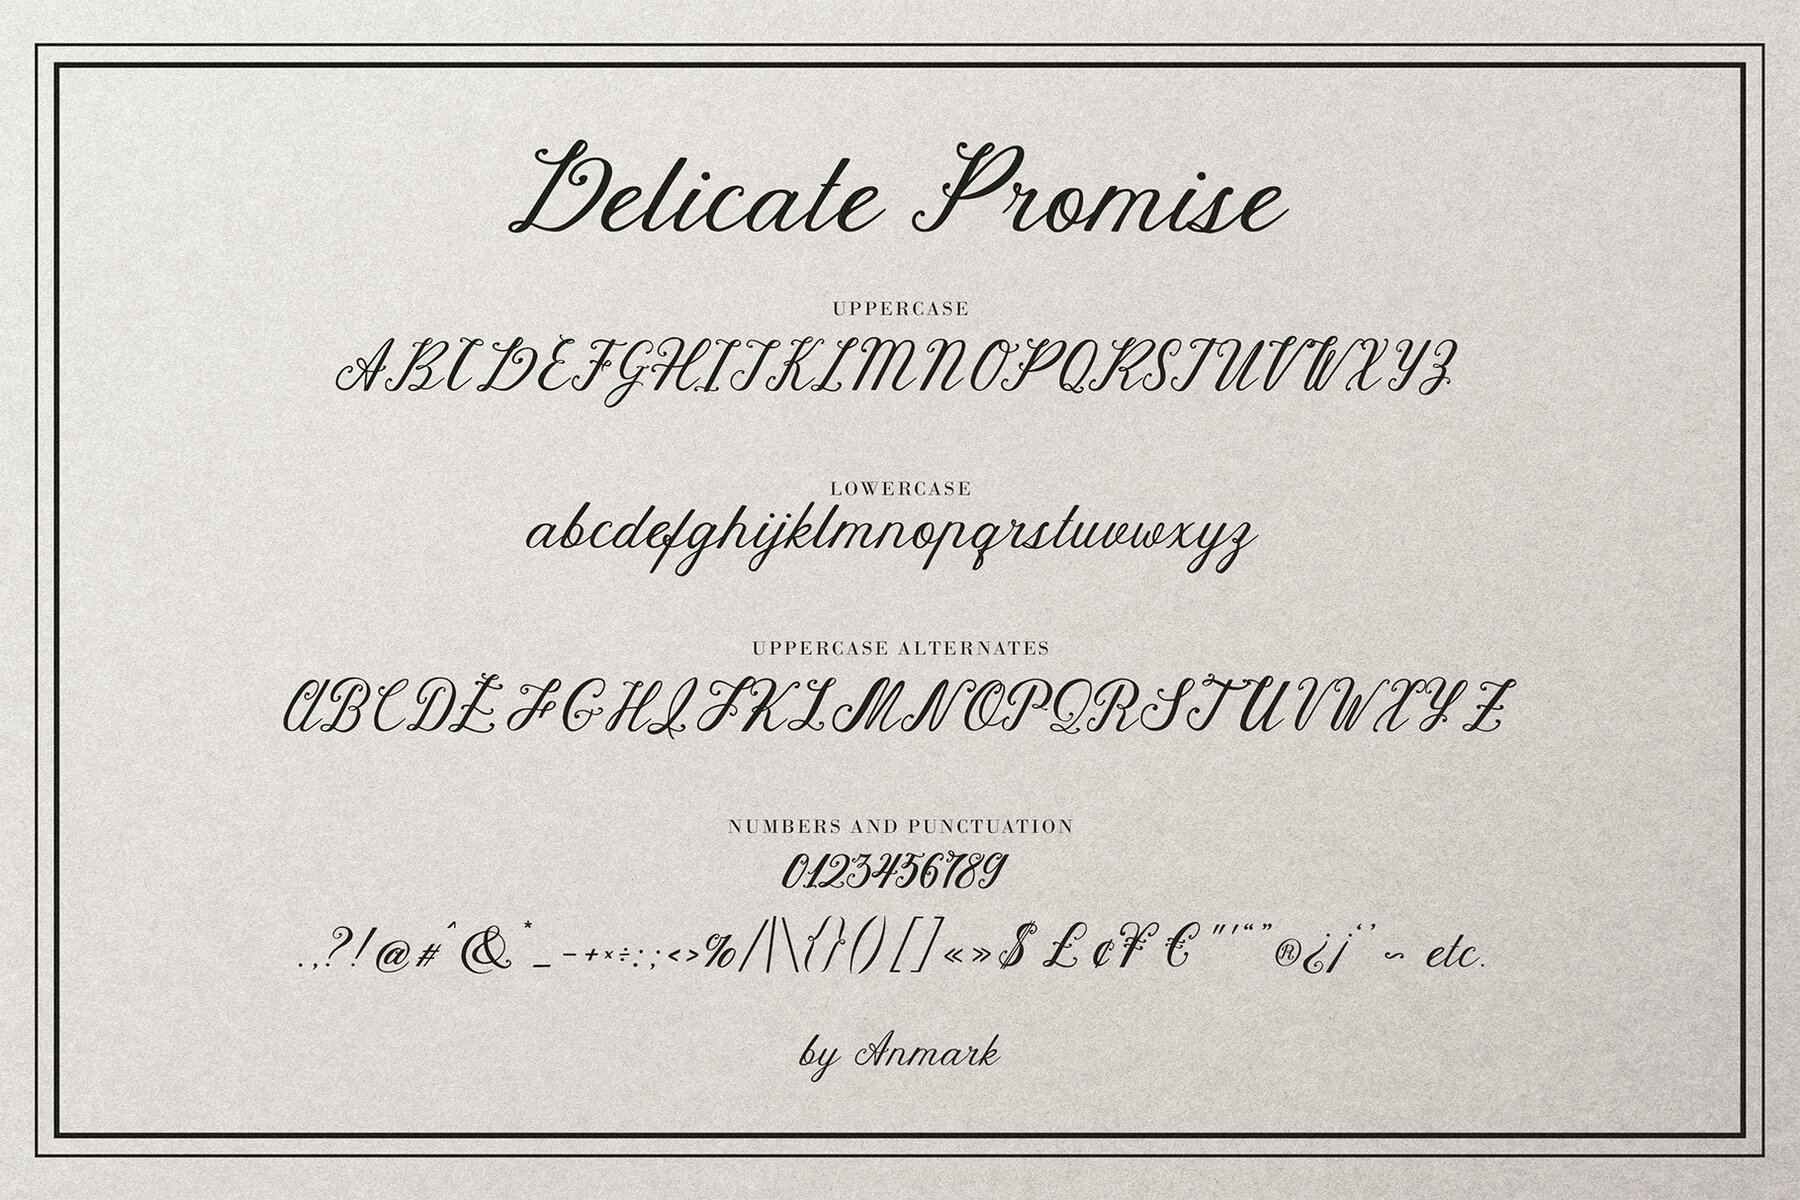 Delicate Promise
UPPERCASE
ABCDEFGHIJKLMNOPQRSTUVWXYZ
LOWERCASE
abcdefghijklmnopqrstuvwxyz
UPPERCASE ALTERNATES
ABCDEFGHIJKLMNOPQRSTUVWXYZ
NUMBERS AND PUNCTUATION
0123456789
.,?!@#^&*_-+×÷:;<>%/|\{}()[]«»$£¢¥€"'“”®¿¡‘’~ etc.
by Anmark